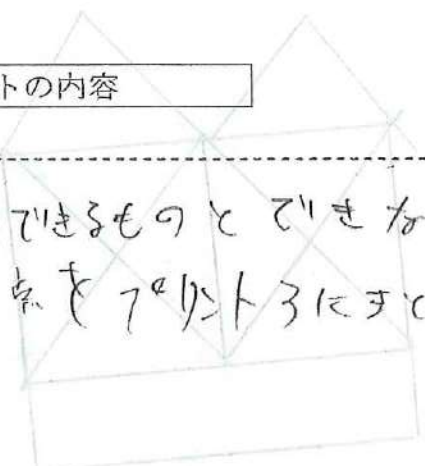 トの内容
できるものと できな
点を プリント3にまと